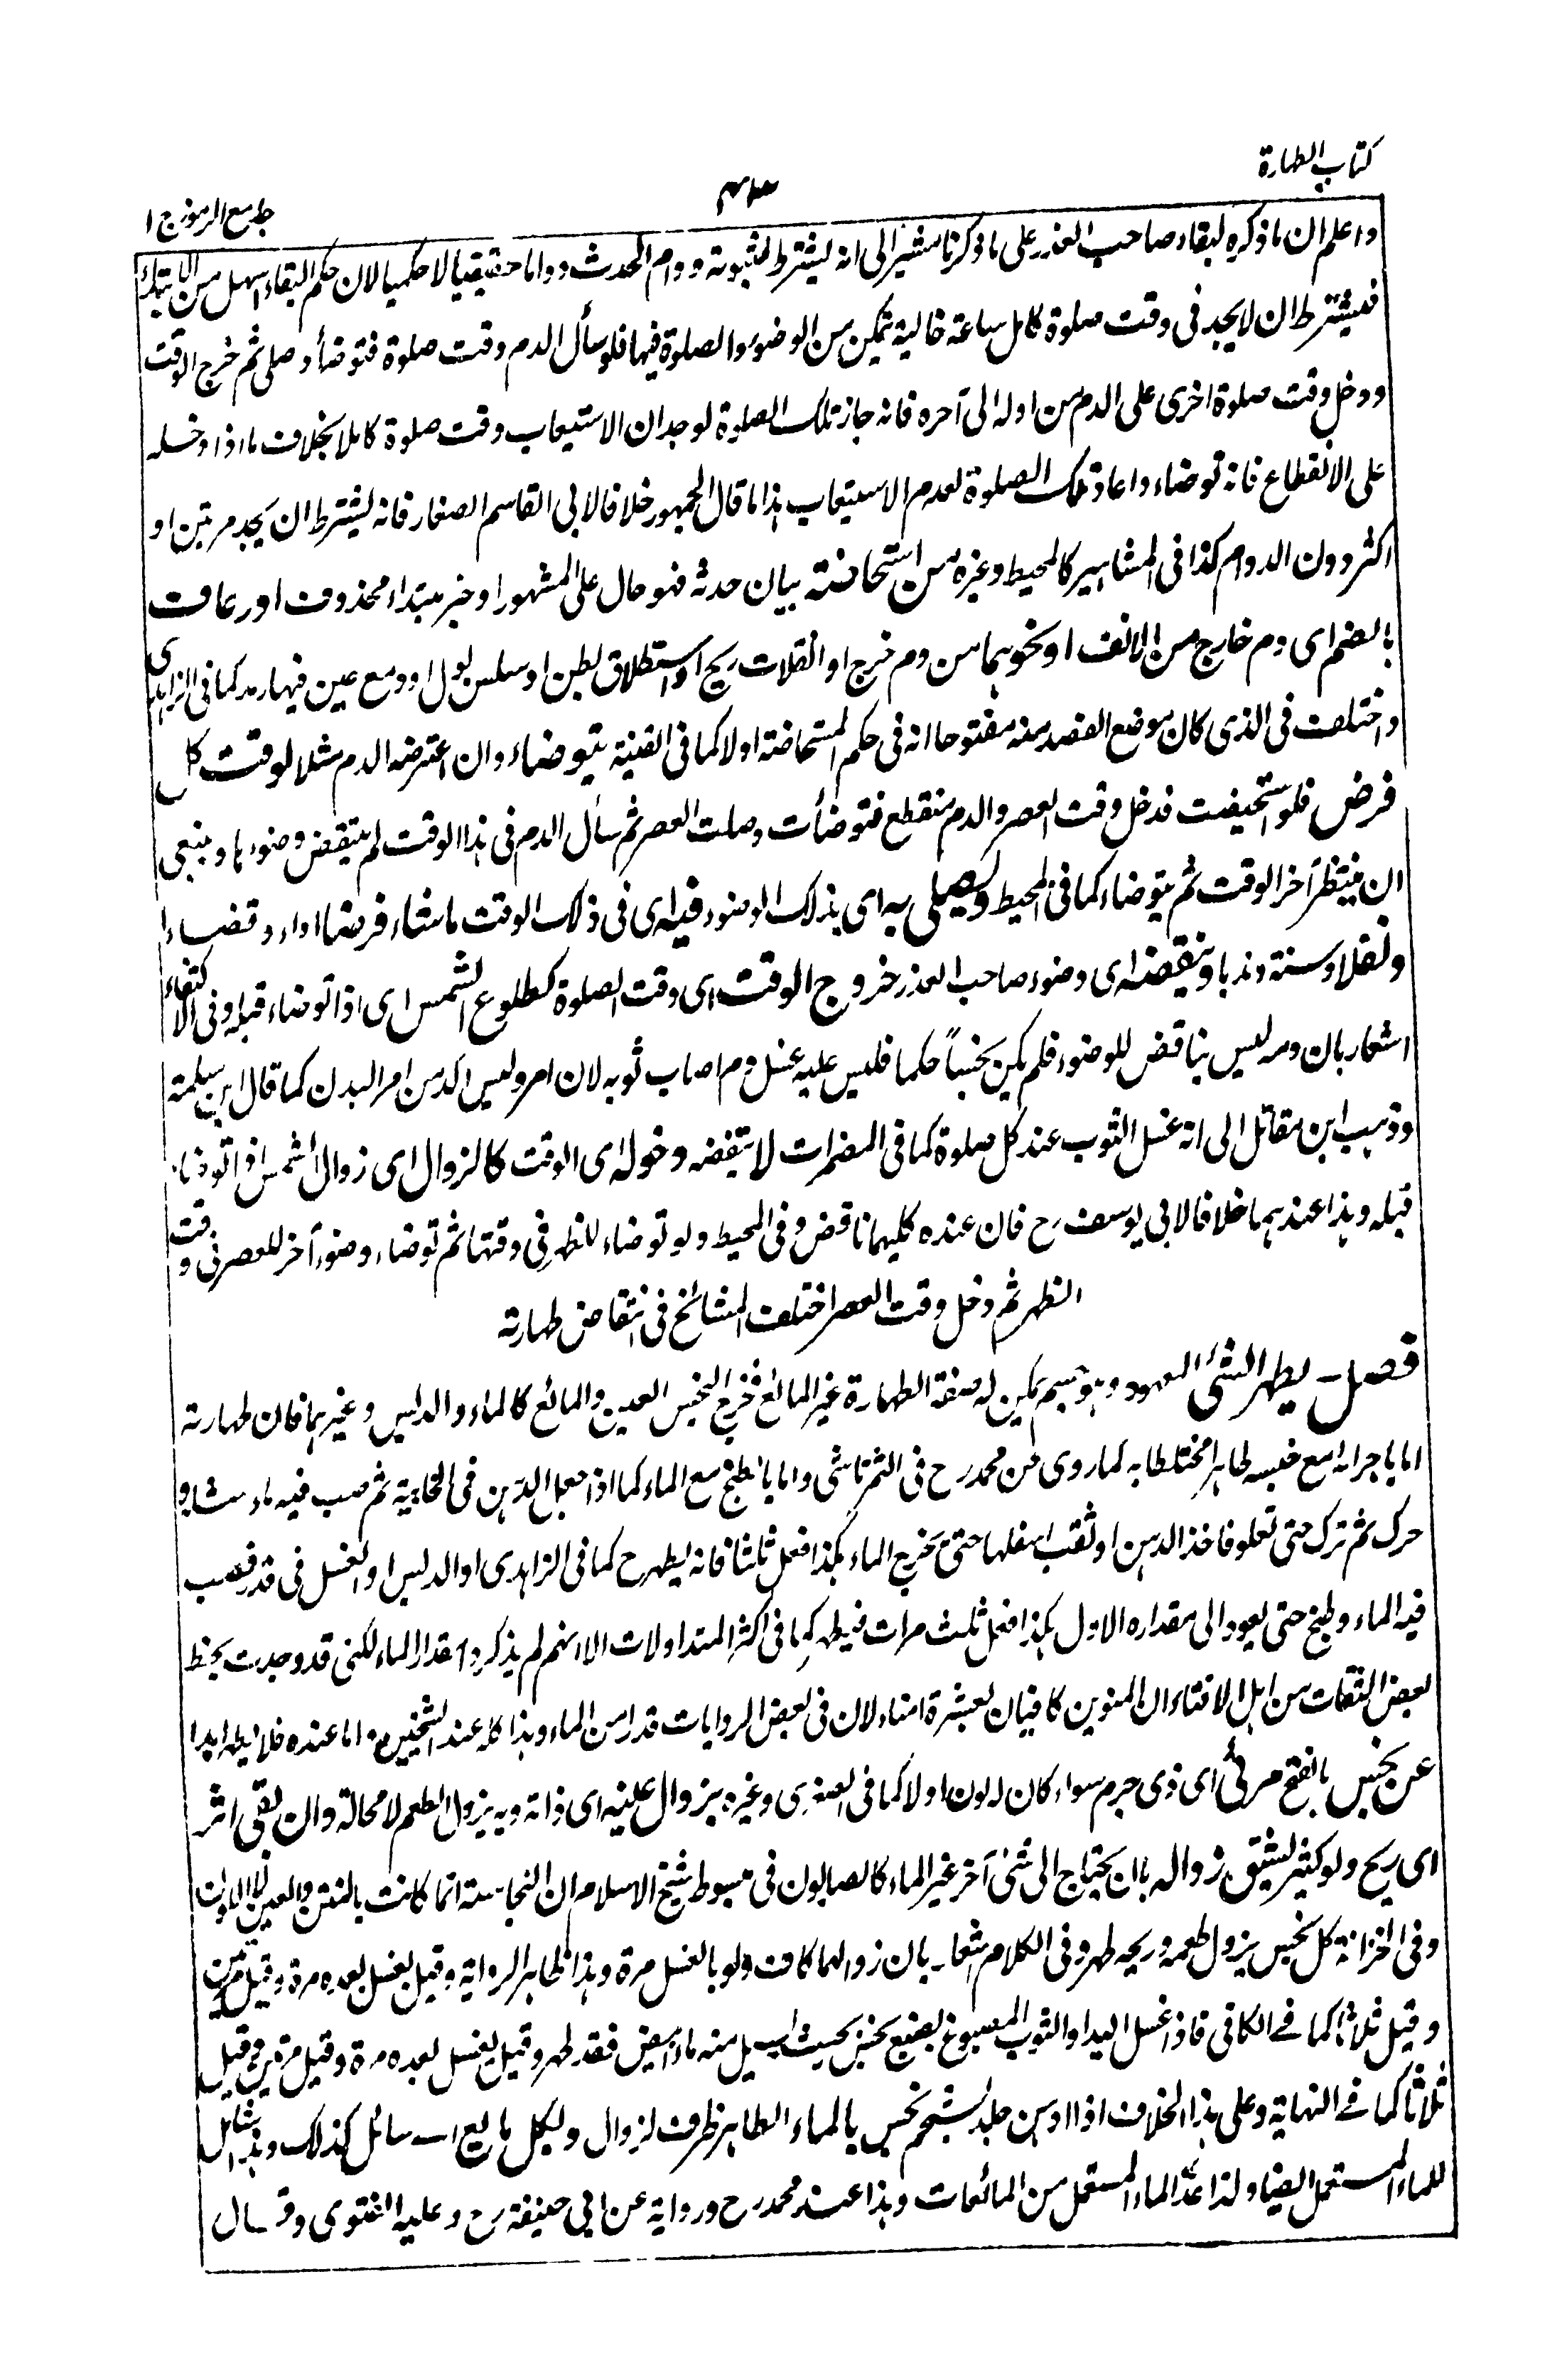 كتاب الطهارة
جامع الرموز ج ١
واعلم ان ما ذكره لبقاء صاحب العذر على ما ذكرنا مشير الى انه يشترط لثبوته دوام الحدث دواما حقيقيا لا حكميا لان حكم البقاء اسهل من الابتداء
فيشترط ان لا يجد فى وقت صلوة كامل ساعة خالية تمكن من الوضوء والصلوة فيها فلو سأل الدم وقت صلوة فتوضأ وصلى ثم خرج الوقت
ودخل وقت صلوة اخرى على الدم من اوله الى آخره فانه جاز تلك الصلوة لوجدان الاستيعاب وقت صلوة كاملا بخلاف ما اذا دخله
على الانقطاع فانه توضاء واعاد تلك الصلوة لعدم الاستيعاب هذا ما قال الجمهور خلافا لابى القاسم الصفار فانه يشترط ان يجد مرتين او
اكثر دون الدوام كذا فى المشاهير كالمحيط وغيره من استحاضة بيان حدثه فهو حال على المشهور او خبر مبتداء محذوف او رعاف
بالضم اى دم خارج من الانف او نحوهما من دم خرج او انفلات ريح او استطلاق بطن او سلس بول او دمع عين فيها رمد كما فى الزاهدى
واختلف فى الذى كان موضع الفصد منه مفتوحا انه فى حكم المستحاضة اولا كما فى القنية يتوضاء وان اعترضه الدم مثلا لوقت كل
فرض فلو استحيضت فدخل وقت العصر والدم منقطع فتوضأت وصلت العصر ثم سأل الدم فى هذا الوقت لم ينتقض وضوءها وينبغى
ان ينتظر آخر الوقت ثم يتوضاء كما فى المحيط ويصلى به اى بذلك الوضوء فيه اى فى ذلك الوقت ما شاء فرضا اداء وقضاء
ونفلا وسنة وندبا وينقضه اى وضوء صاحب العذر خروج الوقت اى وقت الصلوة كطلوع الشمس اى اذا توضاء قبله وفى الاكتفاء
اشعار بان دمه ليس بناقض للوضوء فلم يكن نجسا حكما فليس عليه غسل دم اصاب ثوبه لان امره ليس اكد من امر البدن كما قال ابن سلمة
وذهب ابن مقاتل الى انه غسل الثوب عند كل صلوة كما فى المضمرات لا ينقضه دخوله اى الوقت كالزوال اى زوال الشمس اذا توضاء
قبله وهذا عندهما خلافا لابى يوسف رح فان عنده كليهما ناقض وفى المحيط ولو توضاء للظهر فى وقتها ثم توضاء وضوء آخر للعصر فى وقت
الظهر ثم دخل وقت العصر اختلف المشائخ فى انتقاض طهارته
فصل يطهر الشئ المعهود وهو جسم يمكن له صفة الطهارة غير المائع فخرج النجس العين والمائع كالماء والدبس وغيرهما فان طهارته
اما باجرائه مع جنسه طاهرا مختلطا به كما روى عن محمد رح فى التمرتاشى واما بالطبخ مع الماء كما اذا جعل الدهن فى الخابية ثم صب فيه ماء مثله و
حرك ثم ترك حتى تعلو فاخذ الدهن او ثقب اسفلها حتى يخرج الماء هكذا فعل ثلثا فانه يطهر ح كما فى الزاهدى او الدبس او العسل فى قدر فصب
فيه الماء وطبخ حتى يعود الى مقداره الاول هكذا فعل ثلث مرات فيطهر كما فى اكثر المتداولات الا انهم لم يذكروا مقدار الماء لكنى قد وجدت بخط
بعض الثقات من اهل الافتاء ان المنوين كافيان لعشرة امناء لان فى بعض الروايات قدرا من الماء وهذا كله عند الشيخين اما عنده فلا يطهر ابدا
عن نجس بالفتح مرئى اى ذى جرم سواء كان له لون اولا كما فى الصغرى وغيره بزوال عينه اى ذاته وبه يزول الطعم لا محالة وان بقى اثر
اى ريح ولو كثير يشق زواله بان يحتاج الى شئ آخر غير الماء كالصابون فى مبسوط شيخ الاسلام ان النجاسة انما كانت بالنتن والعين لا باللون
وفى الخزانة كل نجس يزول طعمه وريحه طهر وفى الكلام اشعار بان زوالهما كاف ولو بالغسل مرة وهذا ظاهر الرواية وقيل يغسل بعده مرة وقيل مرتين
وقيل ثلاثا كما فى الكافى فاذا غسل اليد او الثوب المصبوغ بصبغ نجس بحيث يسيل منه ماء ابيض فقد طهر وقيل يغسل بعده مرة وقيل مرتين وقيل
ثلاثا كما فى النهاية وعلى هذا الخلاف اذا دهن جلد بشحم نجس بالماء الطاهر ظرف لزوال وبكل مايع اى سائل كذلك وهذا شامل
للماء المستعمل ايضا ولذا عد الماء المستعمل من المائعات وهذا عند محمد رح ورواية عن ابى حنيفة رح وعليه الفتوى وقال